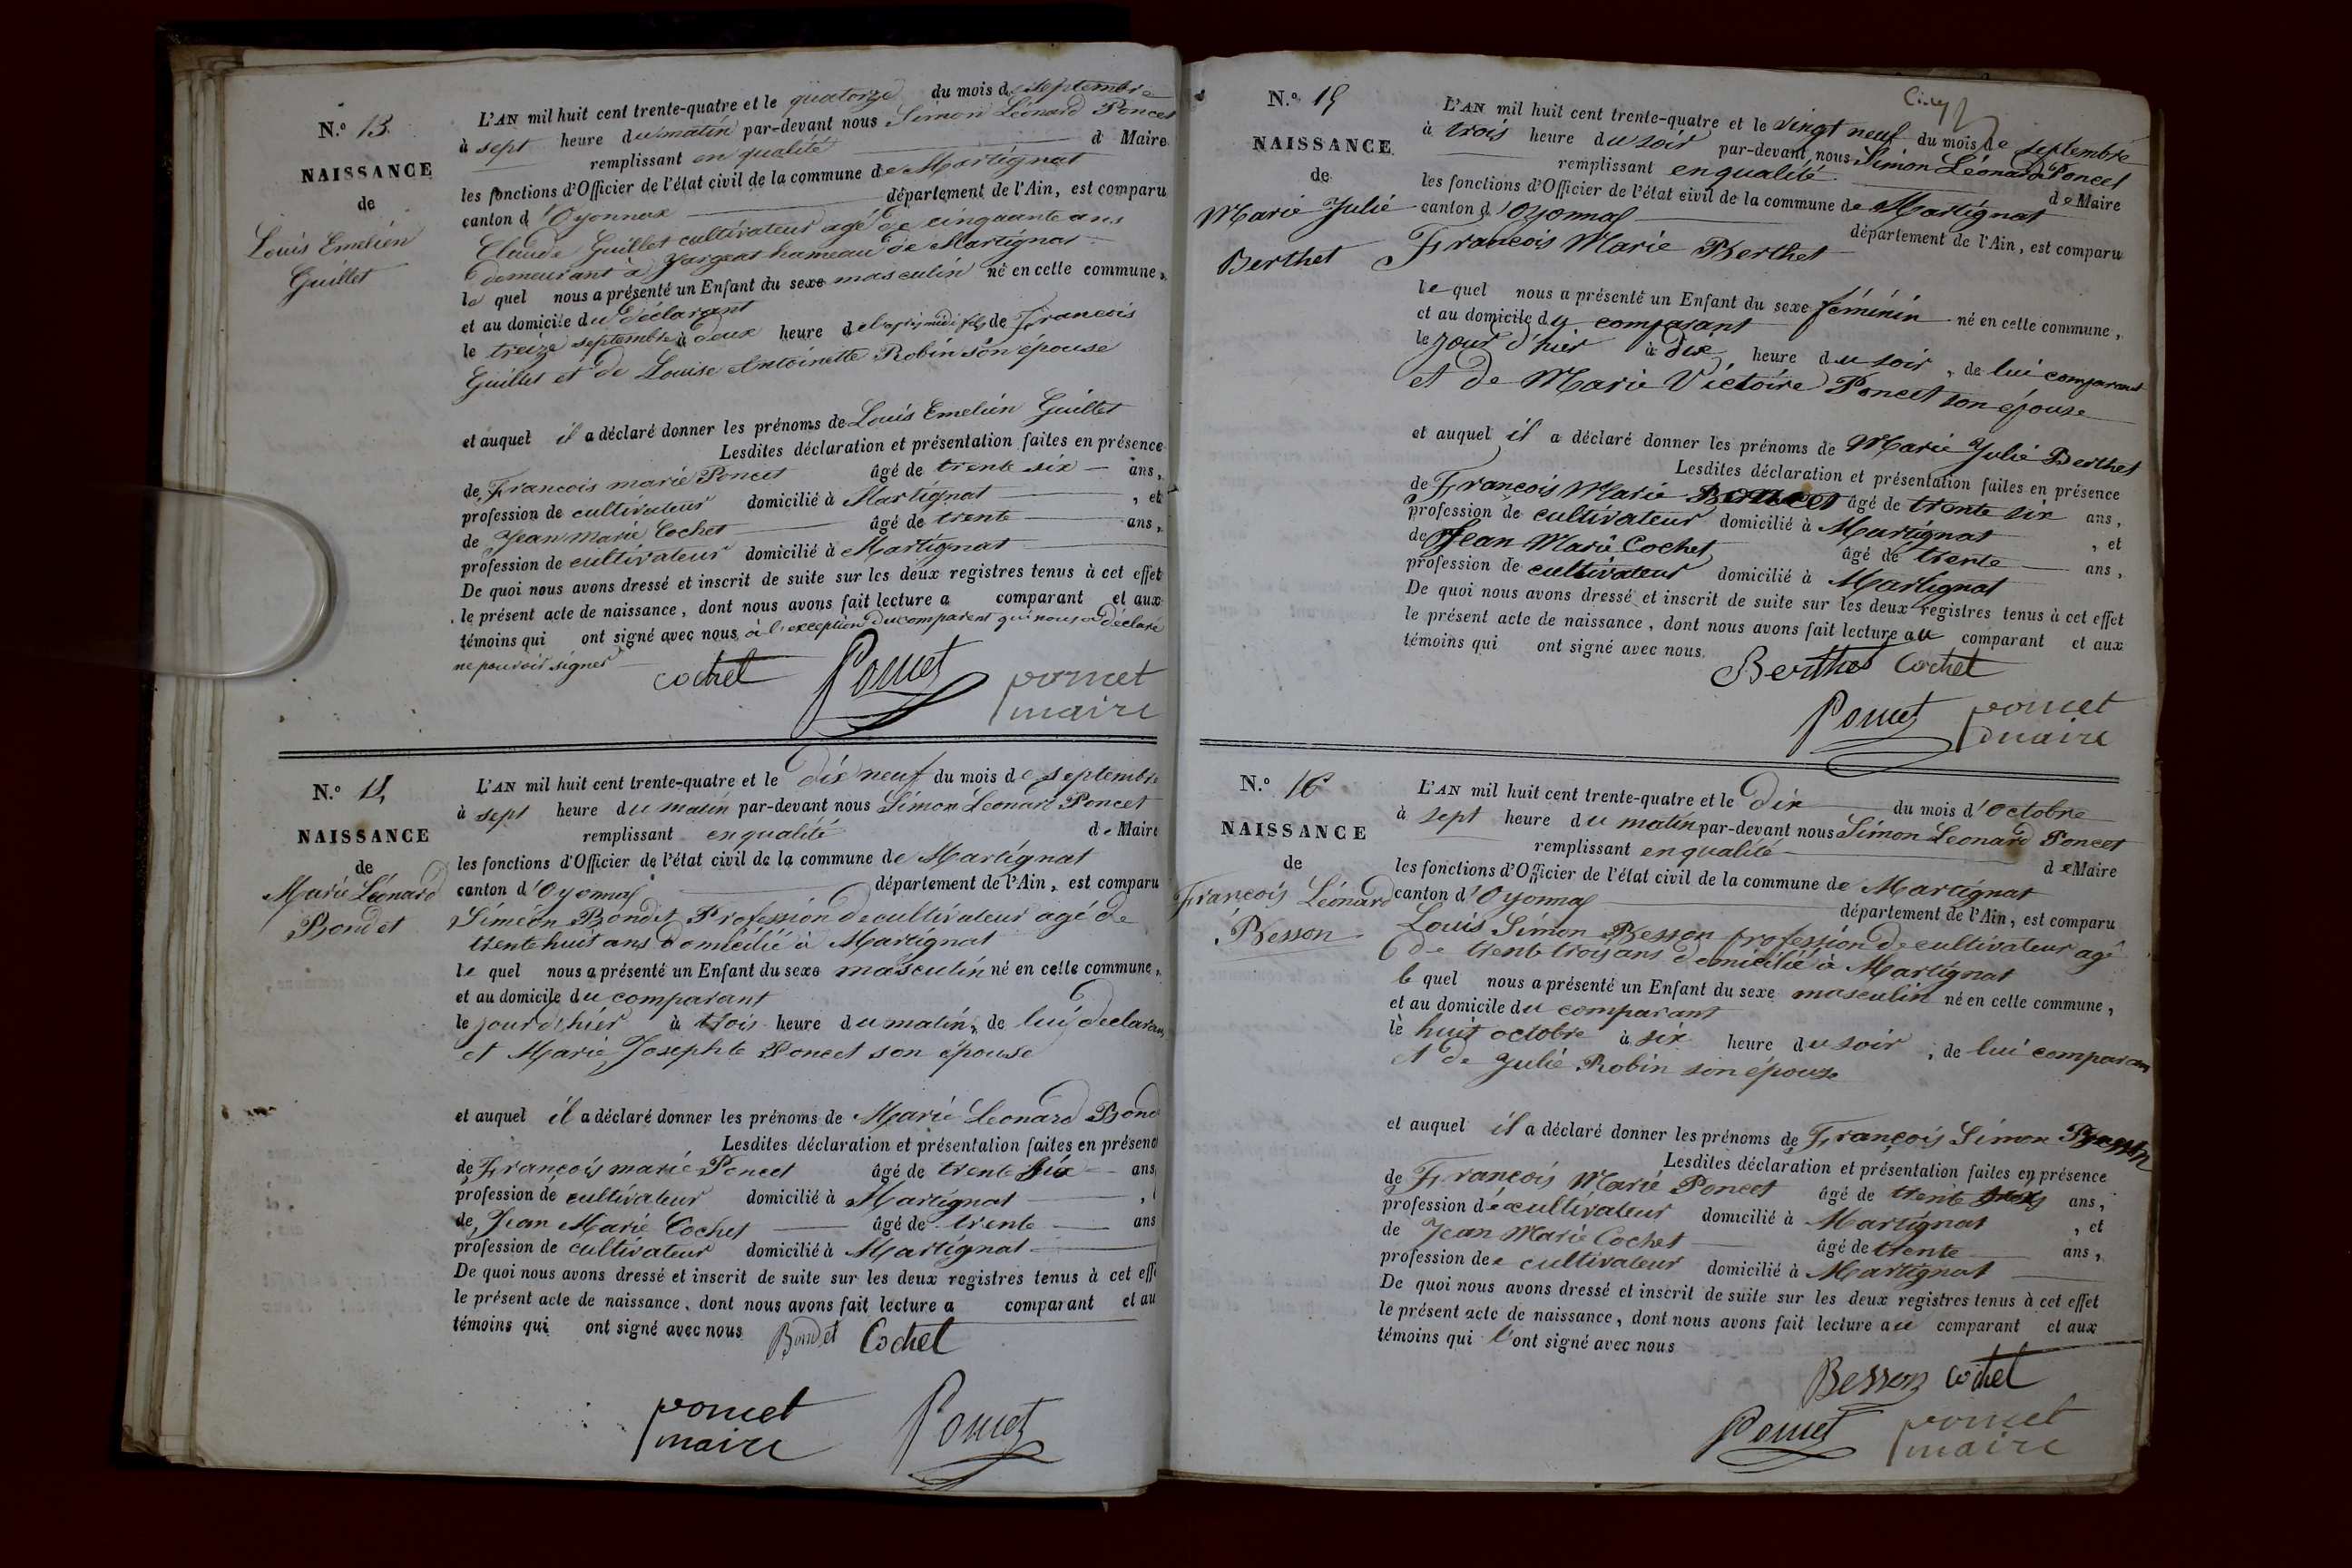 N.° 13.
NAISSANCE
de
Louis Emelien
Guillet
L'AN mil huit cent trente-quatre et le quatorze du mois de septembre
à sept heure du matin par-devant nous Simon Léonard Poncet
remplissant en qualité d Maire
les fonctions d'Officier de l'état civil de la commune de Martignat
canton d'Oyonnax département de l'Ain, est comparu
Claude Guillet cultivateur agé de cinquante ans
demeurant à hameau de Martignat
le quel nous a présenté un Enfant du sexe masculin né en cette commune,
et au domicile du déclarant
le treize septembre à deux heure de l'après midi fils de François
Guillet et de Louise Antoinette Robin son épouse
et auquel il a déclaré donner les prénoms de Louis Emelien Guillet
Lesdites déclaration et présentation faites en présence
de François marie Poncet âgé de trente six ans,
profession de cultivateur domicilié à Martignat , et
de Jean marie Cochet âgé de trente ans,
profession de cultivateur domicilié à Martignat
De quoi nous avons dressé et inscrit de suite sur les deux registres tenus à cet effet
le présent acte de naissance, dont nous avons fait lecture a comparant et aux
témoins qui ont signé avec nous à l'exception du comparant qui nous a déclaré
ne pouvoir signer
cochet Poncet poncet
maire
N.° 14
NAISSANCE
de
Marie Léonard
Bondet
L'AN mil huit cent trente-quatre et le dix neuf du mois de septembre
à sept heure du matin par-devant nous Simon Leonard Poncet
remplissant en qualité de Maire
les fonctions d'Officier de l'état civil de la commune de Martignat
canton d'Oyonnax département de l'Ain, est comparu
Siméon Bondet Profession de cultivateur agé de
trente huit ans domicilié à Martignat
le quel nous a présenté un Enfant du sexe masculin né en cette commune,
et au domicile du comparant
le jour d'hier à trois heure du matin, de lui declarant
et Marie Josephte Poncet son épouse
et auquel il a déclaré donner les prénoms de Marie Leonard Bond
Lesdites déclaration et présentation faites en présence
de François marie Poncet âgé de trente six ans,
profession de cultivateur domicilié à Martignat ,
de Jean Marie Cochet âgé de trente ans
profession de cultivateur domicilié à Martignat
De quoi nous avons dressé et inscrit de suite sur les deux registres tenus à cet eff
le présent acte de naissance, dont nous avons fait lecture a comparant et au
témoins qui ont signé avec nous
Bondet Cochet
poncet Poncet
maire
N.° 15
NAISSANCE
de
Marie Julie
Berthet
L'AN mil huit cent trente-quatre et le vingt neuf du mois de septembre
à trois heure du soir par-devant nous Simon Léonard Poncet
remplissant en qualité de Maire
les fonctions d'Officier de l'état civil de la commune de Martignat
canton d'Oyonnax département de l'Ain, est comparu
François Marie Berthet
le quel nous a présenté un Enfant du sexe féminin né en cette commune,
et au domicile du comparant
le jour d'hier à dix heure du soir, de lui comparant
et de Marie Victoire Poncet son épouse
et auquel il a déclaré donner les prénoms de Marie Julie Berthet
Lesdites déclaration et présentation faites en présence
de François Marie Poncet âgé de trente six ans,
profession de cultivateur domicilié à Martignat , et
de Jean Marie Cochet âgé de trente ans,
profession de cultivateur domicilié à Martignat
De quoi nous avons dressé et inscrit de suite sur les deux registres tenus à cet effet
le présent acte de naissance, dont nous avons fait lecture au comparant et aux
témoins qui ont signé avec nous.
Berthet Cochet
Poncet poncet
maire
N.° 16
NAISSANCE
de
François Léonard
Besson
L'AN mil huit cent trente-quatre et le dix du mois d'octobre
à sept heure du matin par-devant nous Simon Leonard Poncet
remplissant en qualité de Maire
les fonctions d'Officier de l'état civil de la commune de Martignat
canton d'Oyonnax département de l'Ain, est comparu
Louis Simon Besson profession de cultivateur agé
de trente trois ans domicilié à Martignat
le quel nous a présenté un Enfant du sexe masculin né en cette commune,
et au domicile du comparant
le huit octobre à six heure du soir, de lui comparan
et de Julie Robin son épouse
et auquel il a déclaré donner les prénoms de François Simon Besson
Lesdites déclaration et présentation faites en présence
de François Marie Poncet âgé de trente ans,
profession de cultivateur domicilié à Martignat , et
de Jean Marie Cochet âgé de trente ans,
profession de cultivateur domicilié à Martignat
De quoi nous avons dressé et inscrit de suite sur les deux registres tenus à cet effet
le présent acte de naissance, dont nous avons fait lecture au comparant et aux
témoins qui l'ont signé avec nous
Besson cochet
Poncet poncet
maire